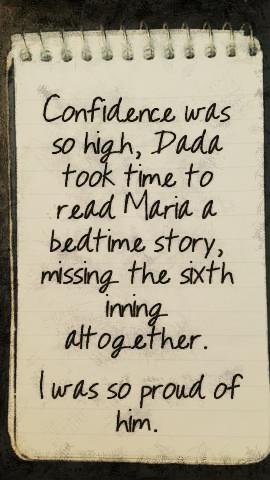 Confidence was
so high, Dada
took time to
read Maria a
bedtime story,
missing the sixth
inning
altogether.
I was so proud of
him.